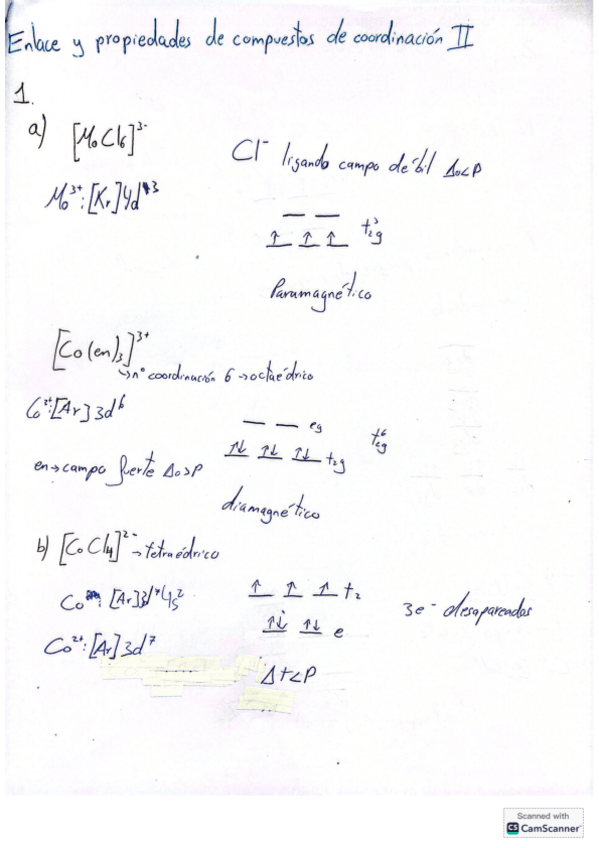 Enlace y propiedades de compuestos de coordinación II
1.
a) [MoCl6]3-
Cl- ligando campo débil Δo<P
Mo3+: [Kr]4d3
↑ ↑ ↑ t2g3
Paramagnético
[Co(en)3]3+
↳ nº coordinación 6 → octaédrico
[Ar] 3d6
eg
↑↓ ↑↓ ↑↓ t2g
t2g6
en → campo fuerte Δo>P
diamagnético
b) [CoCl4]2- → tetraédrico
Co : [Ar]3d7 4s2
↑ ↑ ↑ t2
3e- desapareados
↑↓ ↑↓ e
Co2+: [Ar] 3d7
Δt<P
Scanned with
CS CamScanner